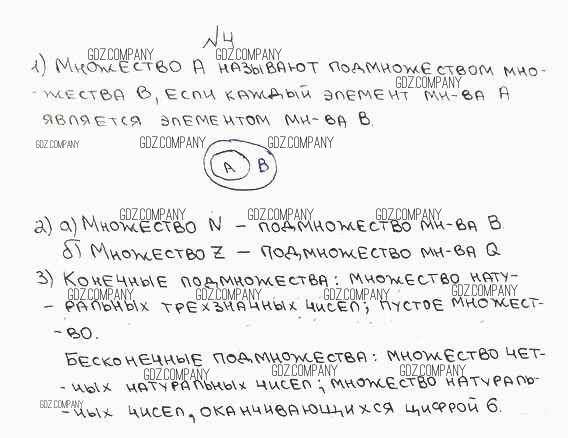 №4
GDZ.COMPANY GDZ.COMPANY
1) Множество А называют подмножеством мно-
GDZ.COMPANY
-жества В, если каждый элемент мн-ва А
является элементом мн-ва В.
GDZ.COMPANY GDZ.COMPANY GDZ.COMPANY
А В
GDZ.COMPANY GDZ.COMPANY GDZ.COMPANY
2) а) Множество N – подмножество мн-ва В
б) Множество Z – подмножество мн-ва Q
3) Конечные подмножества: множество нату-
GDZ.COMPANY GDZ.COMPANY GDZ.COMPANY GDZ.COMPANY
- ральных трехзначных чисел; пустое множест-
-во.
Бесконечные подмножества: множество чет-
GDZ.COMPANY GDZ.COMPANY GDZ.COMPANY
-ных натуральных чисел; множество натураль-
GDZ.COMPANY
-ных чисел, оканчивающихся цифрой 6.